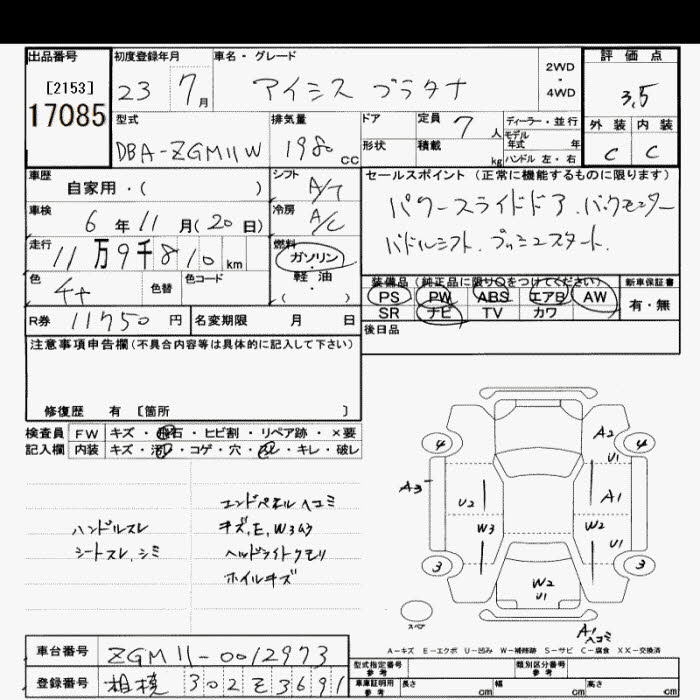 出品番号 初度登録年月 車名・グレード 2WD・4WD 評価点
[2153] 23 7月 アイシス プラタナ 3.5
17085 型式 排気量 ドア 定員 7人 ディーラー・並行 外装 内装
DBA-ZGM11W 198 cc 形状 積載 kg モデル年式 年 C C
ハンドル 左・右
車歴 シフト セールスポイント (正常に機能するものに限ります)
自家用・( ) A/T パワースライドドア.バックモニター
車検 6年11月(20日) 冷房 A/C パドルシフト.プッシュスタート.
走行 11万9千810km 燃料 ガソリン・軽油・( )
装備品 (純正品に限り○をつけてください) 新車保証書
色 色替 色コード PS PW ABS エアB AW 有・無
SR ナビ TV カワ
R券 11750円 名変期限 月 日 後日品
注意事項申告欄(不具合内容等は具体的に記入して下さい)
修復歴 有 [箇所 ]
検査員 FW キズ・飛石・ヒビ割・リペア跡・×要
記入欄 内装 キズ・汚・コゲ・穴・・キレ・破レ
エンドパネルヘコミ
ハンドルスレ キズ,E,W3あり
シートスレ,シミ ヘッドライトクモリ
ホイルキズ
A2
4 4
U1
A3
U2 A1
W3 W2
U1
3 3
W2
U1
スペア
A1
ヘコミ
A-キズ E-エクボ U-凹み W-補修跡 S-サビ C-腐食 XX-交換済
車台番号 ZGM11-0012973 型式指定番号 参考 類別区分番号 参考
登録番号 相模302そ3691 車庫証明用 参考 長さ cm 幅 cm 高さ cm